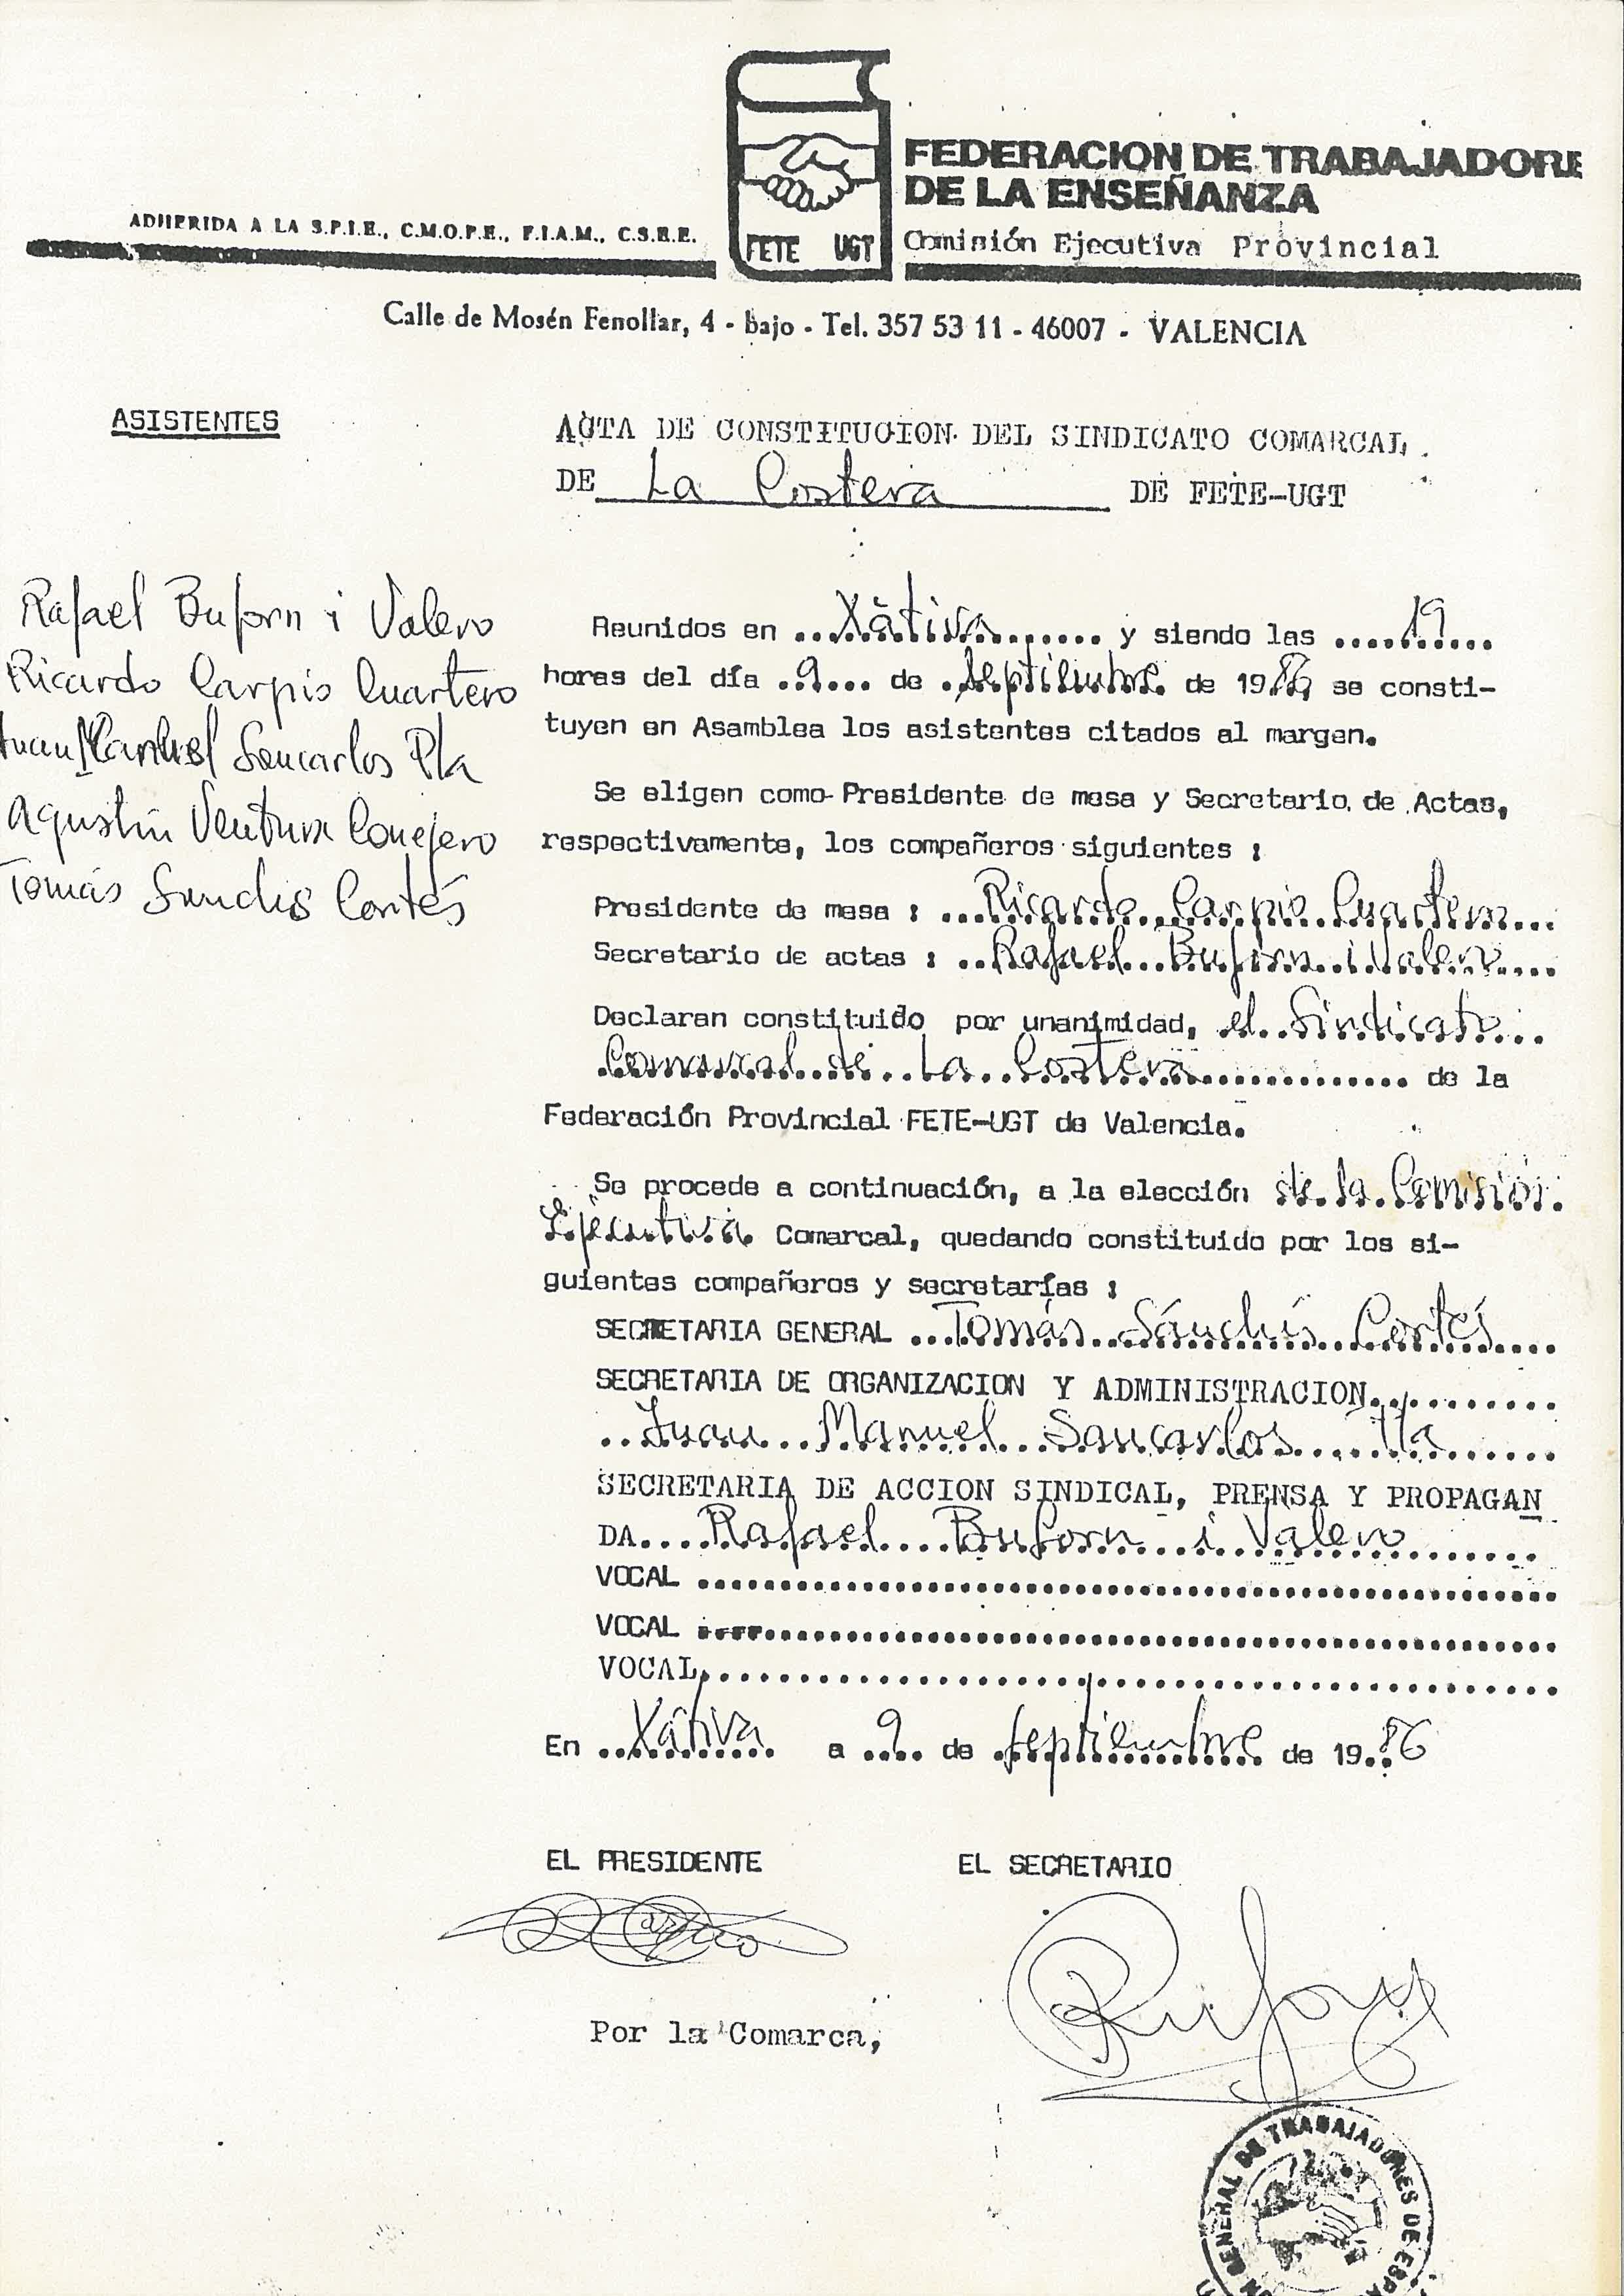 FEDERACION DE TRABAJADORE
DE LA ENSEÑANZA
ADHERIDA A LA S.P.I.E., C.M.O.P.E., F.I.A.M., C.S.E.E.
FETE UGT
Comisión Ejecutiva Provincial
Calle de Mosén Fenollar, 4 - bajo - Tel. 357 53 11 - 46007 - VALENCIA
ASISTENTES
ACTA DE CONSTITUCION DEL SINDICATO COMARCAL
DE La Costera DE FETE-UGT
Rafael Buforn i Valero
Ricardo Carpio Cuartero
Juan Manuel Sancarlos Pla
Agustín Ventura Conejero
Tomás Sanchis Cortés
Reunidos en Xàtiva y siendo las 19
horas del día 9 de septiembre de 1986 se consti-
tuyen en Asamblea los asistentes citados al margen.
Se eligen como Presidente de mesa y Secretario de Actas,
respectivamente, los compañeros siguientes :
Presidente de mesa : Ricardo Carpio Cuartero
Secretario de actas : Rafael Buforn i Valero
Declaran constituido por unanimidad, el Sindicato
Comarcal de La Costera de la
Federación Provincial FETE-UGT de Valencia.
Se procede a continuación, a la elección de la Comisión
Ejecutiva Comarcal, quedando constituido por los si-
guientes compañeros y secretarías :
SECRETARIA GENERAL Tomás Sánchis Cortés
SECRETARIA DE ORGANIZACION Y ADMINISTRACION
Juan Manuel Sancarlos Pla
SECRETARIA DE ACCION SINDICAL, PRENSA Y PROPAGAN
DA Rafael Buforn i Valero
VOCAL
VOCAL
VOCAL
En Xátiva a 9 de septiembre de 1986
EL PRESIDENTE EL SECRETARIO
Carpio
Buforn
Por la Comarca,
GENERAL DE TRABAJADORES DE ESPA